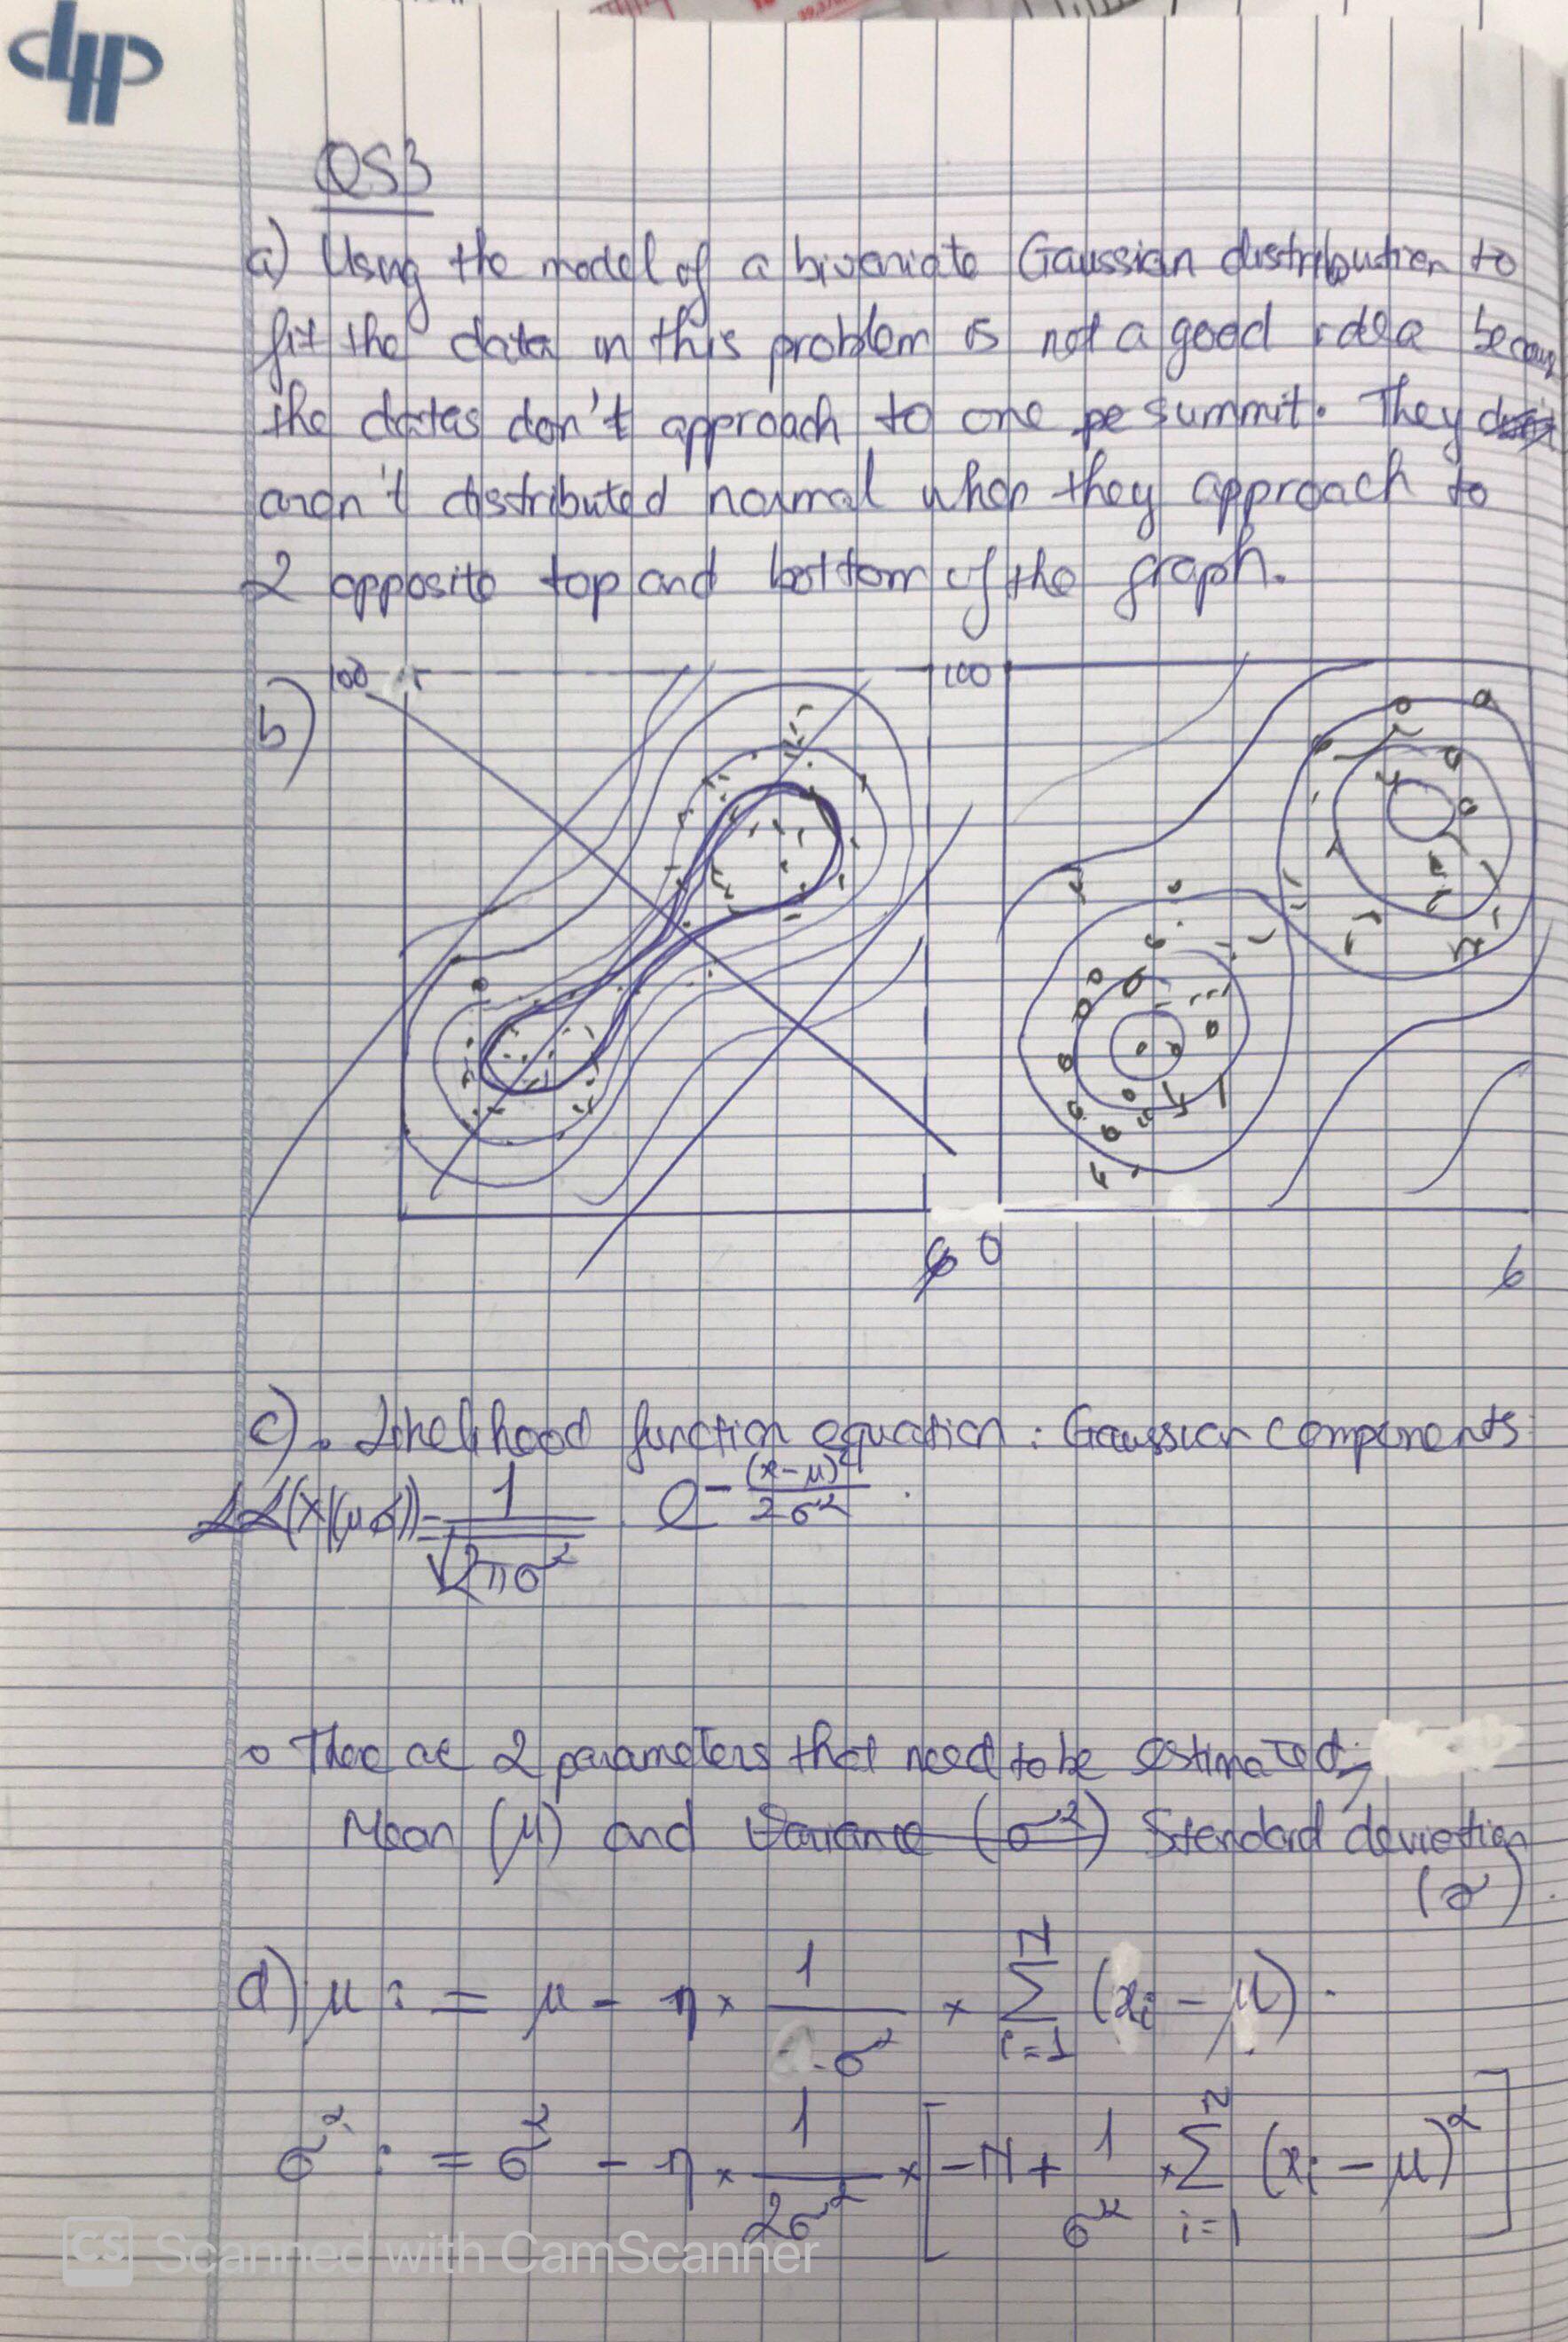 QS3
a) Using the model of a bivariate Gaussian distribution to
fit the data in this problem is not a good idea becaus
the datas don't approach to one pe summit. They
aren't distributed normal when they approach to
2 opposite top and bottom of the graph.
b)
100
100
6 0
6
c) • Likelihood function equation : Gaussian components
L(X|(μ,σ)) = 1/√(2πσ²) . e^-(x-μ)²/2σ² .
• There are 2 parameters that need to be estimated,
Mean (μ) and Variance (σ²) Standard deviation
(σ).
d) μ := μ - η × 1/σ² × Σ_{i=1}^{N} (xi - μ).
σ² := σ² - η × 1/2σ² × [-N + 1/σ² × Σ_{i=1}^{N} (xi - μ)²]
CS Scanned with CamScanner